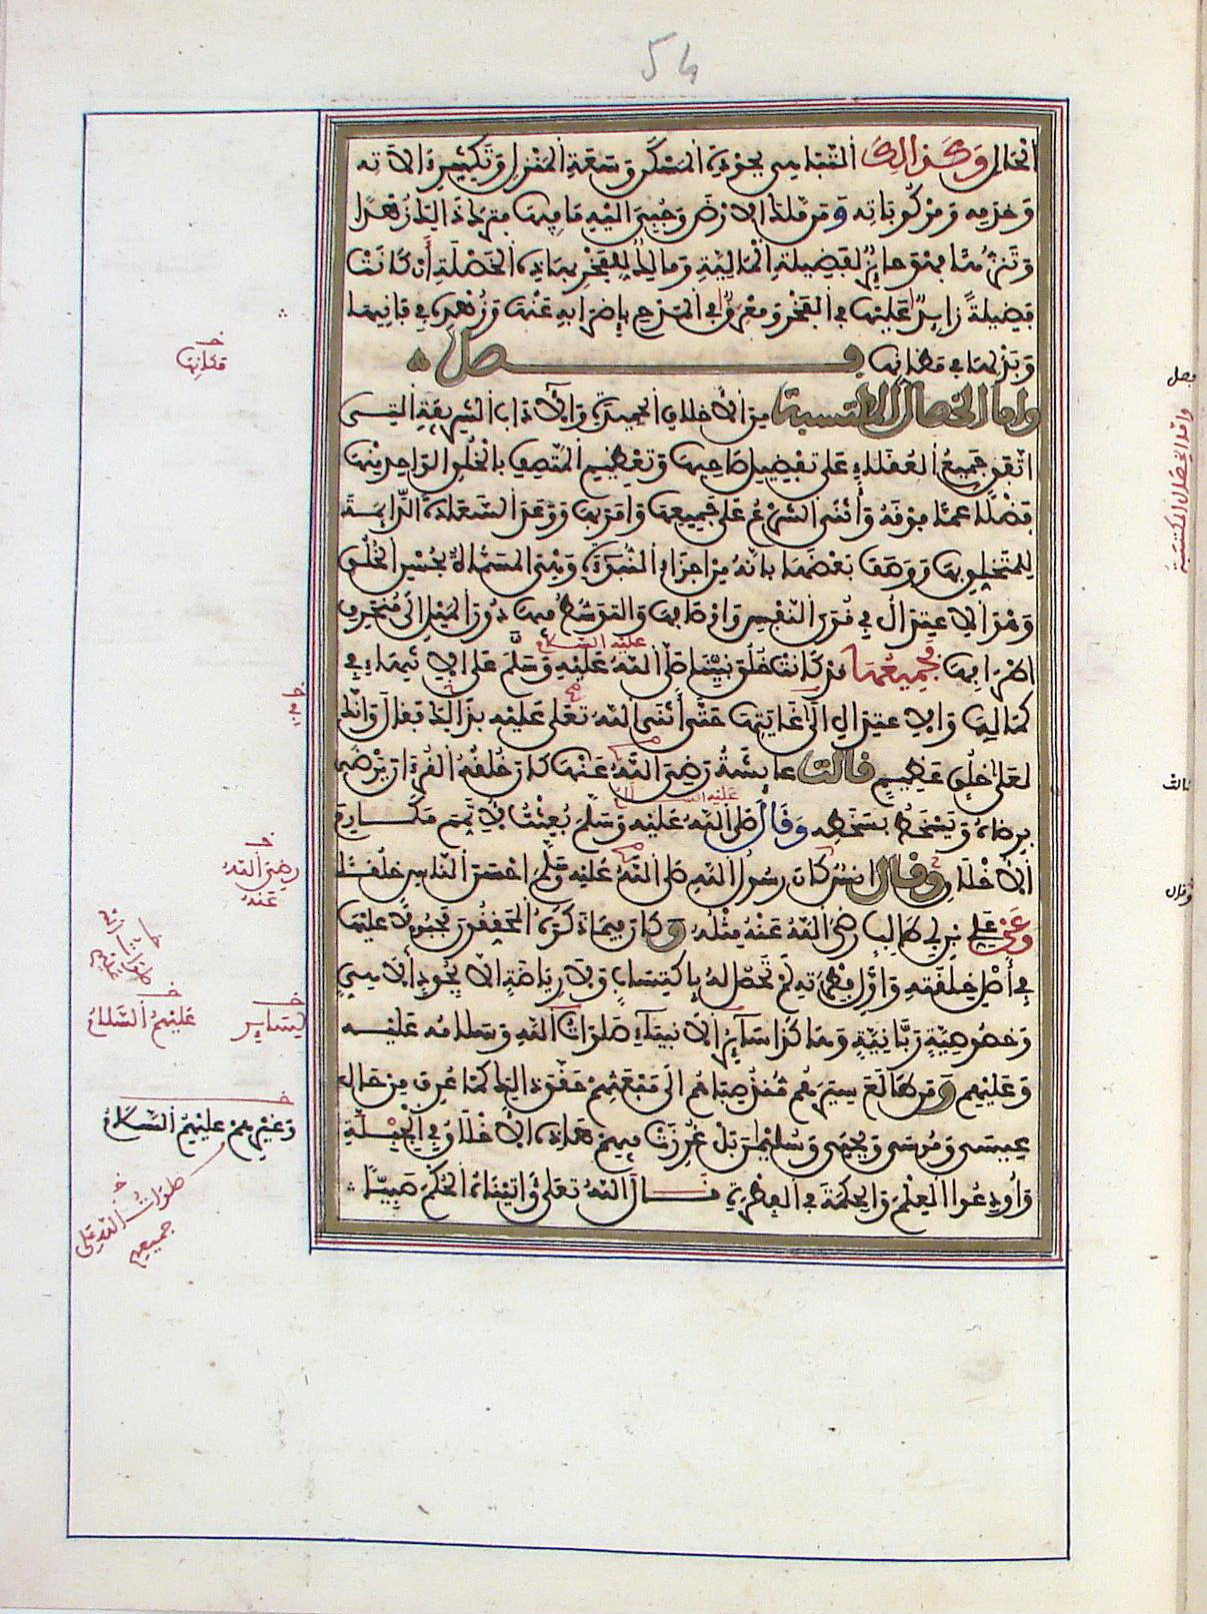 54
الحال وكذلك التباهي بجودة المسكن وسعة المنزل وتكثير الآته
وخدمه ومركوباته ومن ملك الارض وجبي اليه ما فيها فترك ذلك زهدا
وتنزها فهو حايز لفضيلة المالية ومالك للفخر بهاذه الخصلة أن كانت
فضيلة زايد عليها في الفخر ومعرق في المدح بإضرابه عنها وزهده في فانيها
وبذلها في مظانها فصل
واما الخصال المكتسبة من الأخلاق الحميدة والآداب الشريفة التي
اتفق جميع العقلاء على تفضيل صاحبها وتعظيم المتصف بالخلق الواحد منها
فضلا عما فوقه وأثنى الشرع على جميعها وامر بها ووعد السعادة الدايمة
للمتخلق بها ووصف بعضها بانه من اجزاء النبوة وهي المسماة بحسن الخلق
وهو الاعتدال في قوى النفس واوصافها والتوسط فيها دون الميل الى منحرف
اطرافها فجميعها قد كانت خلق نبينا صلى الله عليه وسلم على الانتهاء في
عليه السلام
كمالها والاعتدال الى غايتها حتى أثنى الله تعلى عليه بذالك فقال وانك
لعلى خلق عظيم قالت عايشة رضي الله عنها كان خلقه القرءان يرضى
برضاه ويسخط بسخطه وقال صلى الله عليه وسلم بعثت لأتمم مكارم
عليه السلام
الأخلاق وقال انس كان رسول الله صلى الله عليه وسلم احسن الناس خلقا
وعن علي بن ابي طالب رضي الله عنه مثله وكان فيما ذكره المحققون مجبولا عليها
في أصل خلقته واول فطرته لم تحصل له باكتساب ولا رياضة الا بجود الاهي
وخصوصية ربانية وهاكذا سآير الأنبيآء صلوات الله وسلامه عليه
وعليهم ومن طالع سيرهم منذ صباهم الى مبعثهم حقق ذالك كما عرف من حال
عيسى وموسى ويحيى وسليمان بل غرزت فيهم هاذه الأخلاق في الجبلة
وأودعوا العلم والحكمة في الفطرة قال الله تعلى وآتيناه الحكم صبيا
مكانها
في
رضي الله
عنه
عليهم السلام
لساير
وغيرهم عليهم السلام
صلوات الله على
جميعهم
فصل
واما الخصال المكتسبة
قالت
وقال